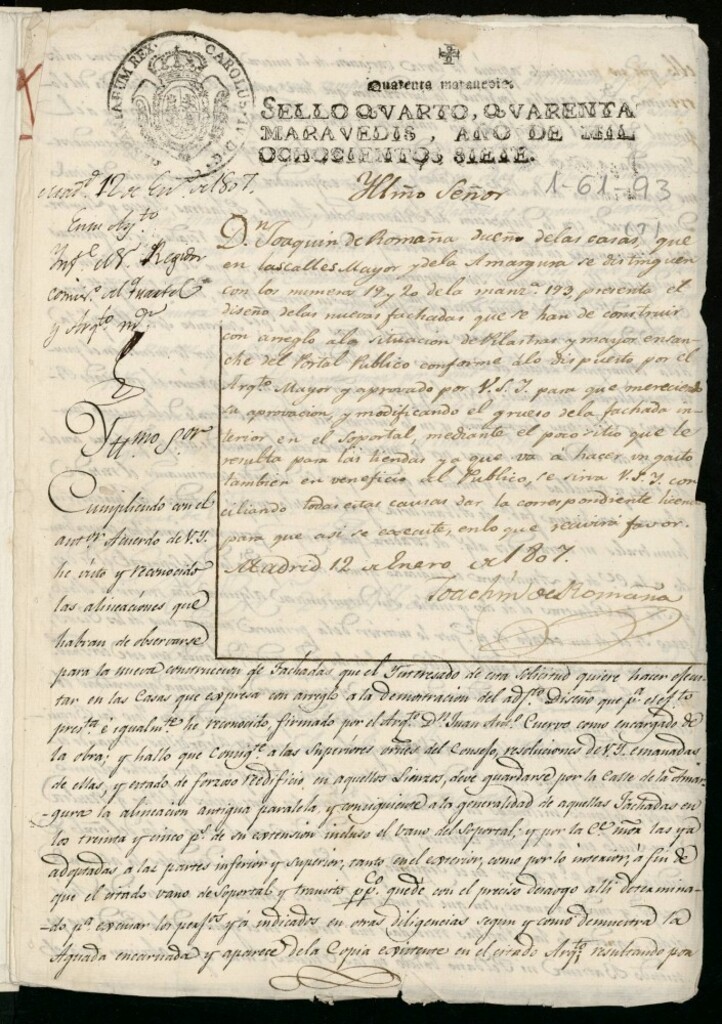 CAROLUS IV D.G.
ARUM REX.
Quarenta maravedis.
SELLO QVARTO, QVARENTA
MARAVEDIS, AÑO DE MIL
OCHOCIENTOS SIETE.
1-61-93
Yllmo Señor
12 de En.º de 1807.
Inf.e el Sr. Regidor
comis.º del Quartel
y Arq.to m.or
D.n Joaquin de Romaña dueño de las casas, que
en las calles Mayor y de la Amargura se distinguen
con los numeros 19 y 20 de la manz.a 193, presenta el
diseño de las nuevas fachadas que se han de construir
con arreglo á la situacion de Pilastras y mayor ensan-
che del Portal Publico conforme á lo dispuesto por el
Arq.to Mayor y aprovado por V.S.I. para que mereciendo
su aprovacion, y modificando el grueso de la fachada in-
terior en el Soportal, mediante el poco sitio que le
resulta para las tiendas ya que va á hacer un gasto
tambien en veneficio del Publico, se sirva V.S.I. con-
ciliando todas estas causas dar la correspondiente licen
para que asi se execute, en lo que recivirá favor.
Madrid 12 de Enero de 1807.
Joachin de Romaña
Yllmo Sor
Cumpliendo con el
ant.or Acuerdo de V.I.
he visto y reconocido
las alineaciones que
habran de observarse
para la nueva construccion de Fachadas que el Interesado de esta solicitud quiere hacer ejecu-
tar en las Casas que expresa con arreglo a la demostracion del adj.to Diseño que p.a el efto
pres.ta é igualm.te he reconocido, firmado por el Arq.to D.n Juan Ant.o Cuervo como encargado de
la obra; y hallo que consig.te a las Superiores ordnes del Consejo, resoluciones de V.I. emanadas
de ellas, y estado de forzoso redificio, en aquellos Lienzos, deve guardarse por la Calle de la Amar-
gura la alineacion antigua paralela, y consiguiente a la generalidad de aquellas Fachadas en
los treinta y cinco p.s de su extension incluso el vano del Soportal; y por la C.e may.r las ya
adoptadas a las partes inferior y superior, tanto en el exterior, como por lo interior, á fin de
que el citado vano de Soportal y transito pp.co quede con el preciso desaogo alli determina-
do p.a escusar los perj.os ya indicados en otras diligencias segun y como demuestra la
Aguada encarnada y aparece de la Copia existente en el citado Arq.to resultando por